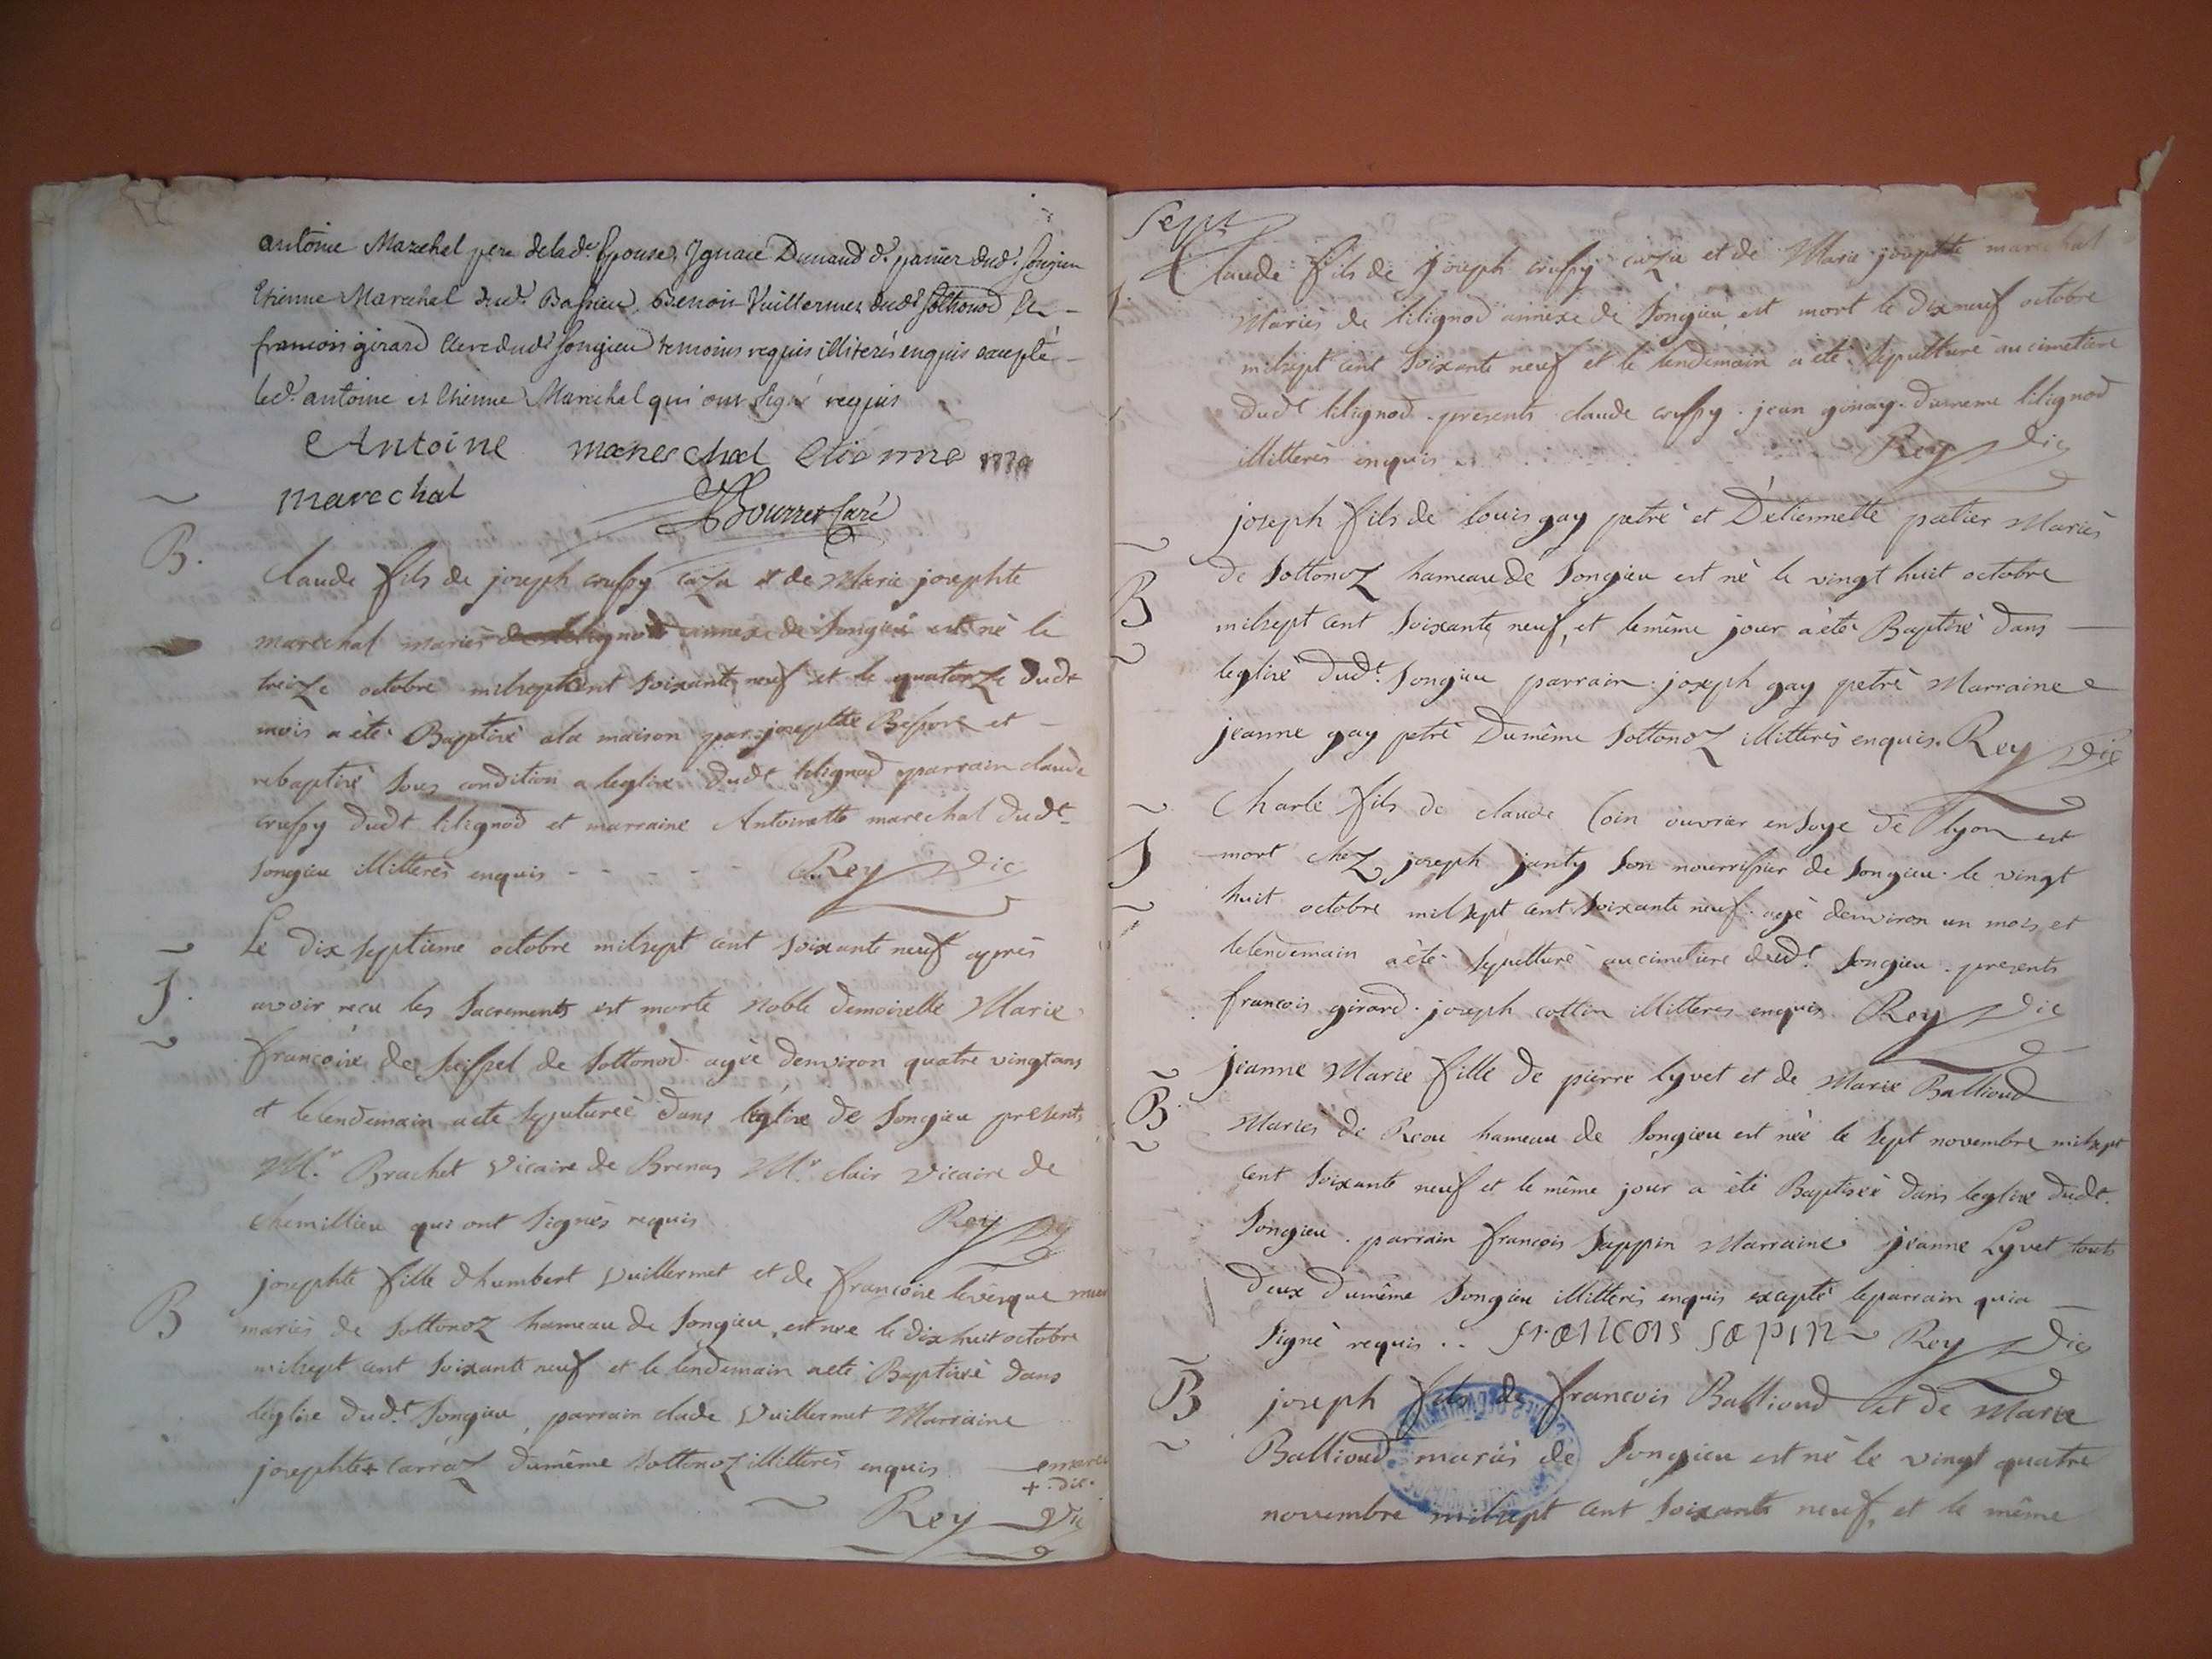 antoine Marechal pere delad.e Epouse, Ignace Dunand d. panier dud. Songieu
Etienne Marechal dud.t Bassieu, Benoit Vuillermet dud.t Sothonod Et
francois girard clerc dud.t Songieu temoins requis illiterés enquis excepté
led.t antoine et Etienne Marechal qui ont signé requis
Antoine mareschal etienne ma
marechal
Bourret Curé
B.
Claude fils de joseph crussy caza et de Marie josephte
marechal mariés de lilignod annexe de Songieu est né le
treize octobre milsept cent soixante neuf et le quatorze dudt
mois a été Baptisé a la maison par josephte et
rebaptisé sous condition a leglise dudt lilignod parrain claude
crussy dudt lilignod et marraine Antoinette marechal dudt
Songieu illitterès enquis Rey Vic
S.
Le dix septieme octobre milsept cent soixante neuf après
avoir reçu les Sacrements est morte Noble demoiselle Marie
francoise de Seissel de Sottonod agée denviron quatre vingt ans
et lelendemain a eté sepulturée dans leglise de Songieu presents
M.r Brachet Vicaire de Brenas M.r clair vicaire de
chemillieu qui ont signés requis Rey Vic
B
josephte fille dhumbert Vuillermet et de francoise levèsque
mariés de Sottonoz hameau de Songieu, est née le dix huit octobre
milsept cent soixante neuf et le lendemain a eté Baptisée dans
leglise dud.t Songieu, parrain clade Vuillermet Marraine
josephte + Carraz dumême Sottonoz illitterès enquis
+ dit.
Rey Vic
Sept
S.
Claude fils de joseph crussy caza et de Marie josephte marechal
Mariés de lilignod annexe de Songieu, est mort le dix neuf octobre
milsept cent soixante neuf et le lendemain a été sepulturé au cimetiere
dudt lilignod presents claude crussy. jean du meme lilignod
illitterès enquis Rey Vic
B
joseph fils de louis gay petré et Detiennette patier Mariés
de Sottonoz hameau de Songieu est né le vingt huit octobre
milsept cent soixante neuf, et lemême jour a été Baptisé dans
leglise dud.t Songieu parrain joseph gay petré Marraine
jeanne gay petré Dumême Sottonoz illitterès enquis. Rey Vic
S
Charle fils de claude Coin ouvrier en soye de lyon est
mort chez joseph janty son nourrissier de Songieu le vingt
huit octobre milsept cent soixante neuf agé denviron un mois, et
lelendemain a été sepulturé au cimetiere dud.t Songieu. presents
francois girard. joseph cottin illitteres enquis Rey Vic
B
jeanne Marie fille de pierre lyvet et de Marie Ballioud
Mariés de Reou hameau de Songieu est née le sept novembre milsept
cent soixante neuf et le même jour a été Baptisée dans leglise dudt.
Songieu. parrain francois Sappin Marraine jeanne Lyvet touts
deux dumême Songieu illitterès enquis excepté leparrain qui a
signé requis .. francois sapin Rey Vic
B
joseph fils de francois Ballioud et de Marie
Ballioud mariés de Songieu est né le vingt quatre
novembre milsept cent soixante neuf, et le même